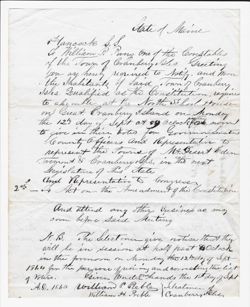 State of Maine
Hancock S.S.
To William P. Preble one of the Constables
of the Town of Cranberry Isles Greeting
you are hereby required to Notify and Warn
the Inhabitants of said Town of Cranberry
Isles Qualified as the Constitution requires
to assemble at the North School House
on Great Cranberry Island on Monday
the 12th day of Sept at
to give in their Votes for Governor
County Officers and Representative to
represent the Town of Mt Desert Eden
Tremont & Cranberry Isles in the next
Legislature of this State
And Representative to Congress
2nd To Act on the Amendment of the Constitution
And attend any other business as may
come before said Meeting
N.B. The Selectmen give notice that they
will be in session at
in the forenoon on Monday the 12th day of Sept
1864 for the purpose of correcting the list
of Voters. Given Under Our Hands the day of Sept
A.D. 1864 William P. Preble Selectmen
William H. Preble Cranberry Isles